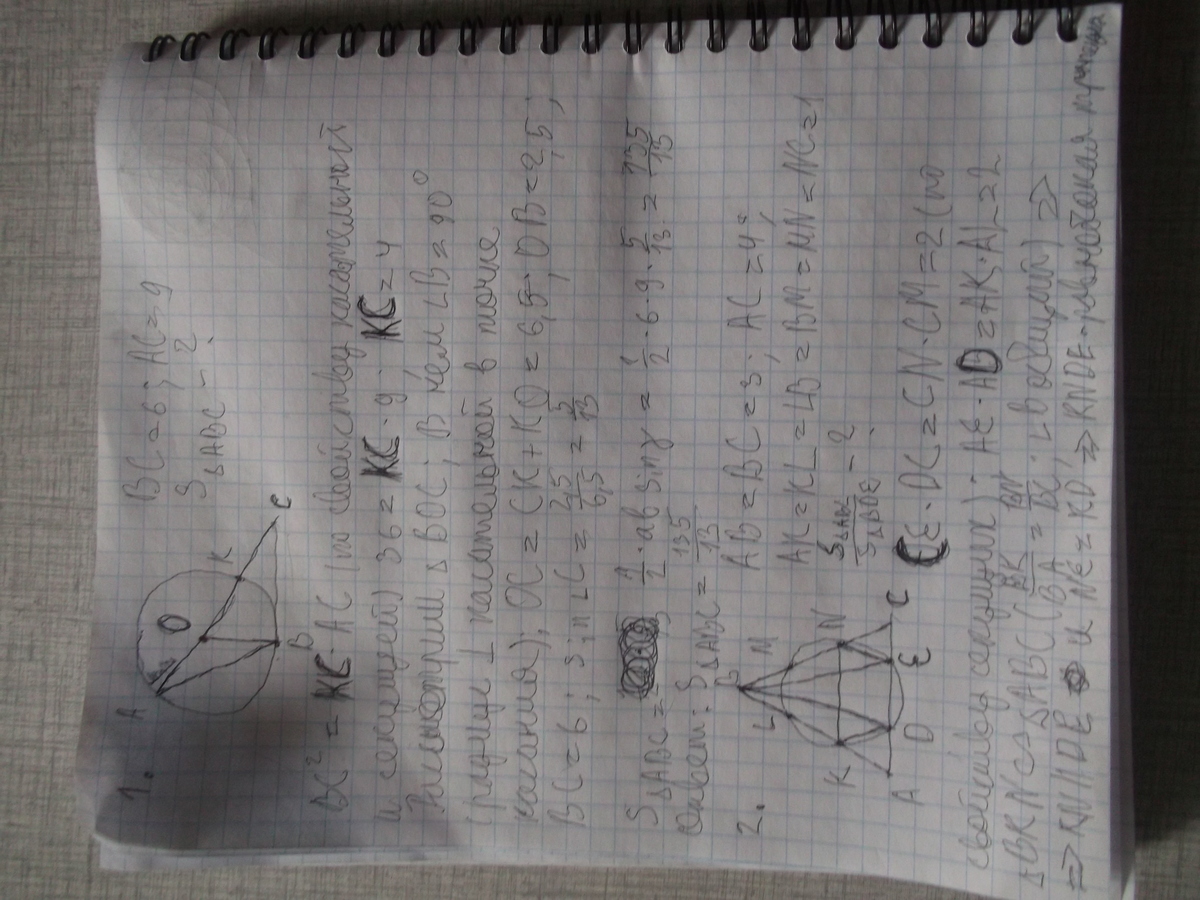 1.
A
O
K
B
C
BC = 6; AC = 9
S△ABC - ?
BC² = KC · AC (по свойству касательной
и секущей) 36 = KC · 9; KC = 4
Рассмотрим △BOC; В нём ∠B = 90°
(радиус ⊥ касательной в точке
касания); OC = CK + KO = 6,5; OB = 2,5;
BC = 6; sin ∠C = 2,5/6,5 = 5/13
S△ABC = 1/2 · ab sin γ = 1/2 · 6 · 9 · 5/13 = 135/13
Ответ: S△ABC = 135/13
2.
B
L
M
K
N
A
D
E
C
AB = BC = 3; AC = 4;
AK = KL = LB = BM = MN = NC = 1
CE · DC = CN · CM = 2 (по
свойству секущих); AE · AD = AK · AL = 2
△BKN ∼ △ABC (BK/BA = BN/BC; ∠B общий) ⇒
⇒ KN || DE и NE = KD ⇒ KNDE - равнобокая трапеция